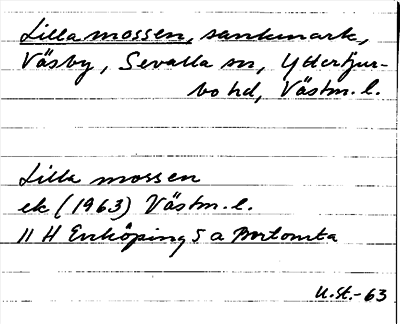 Lilla mossen, sankmark,
Väsby, Sevalla sn, Yttertjur-
bo hd, Västm. l.
Lilla mossen
ek (1963) Västm. l.
11 H Enköping 5 a
U.St.-63